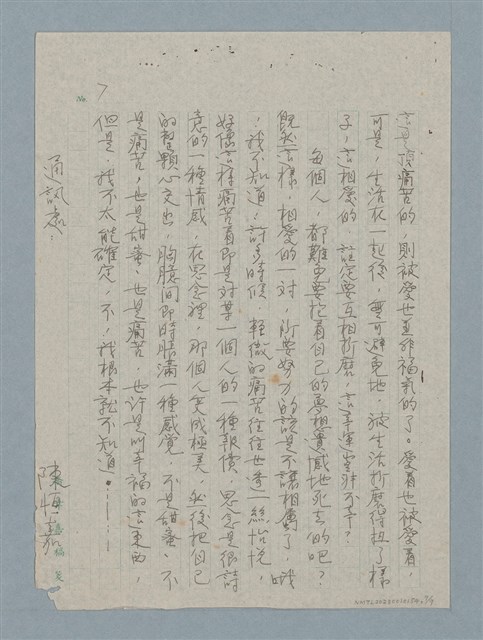 言是頂痛苦的,則被愛也並非福氣的了。愛着也被愛着,
可是,生活在一起後,無可避免地,被生活折磨得扭了樣
子,這相愛的,註定要互相折磨,言幸寧非不幸?
每個人,都難免要抱着自己的夢相實感地死去的吧?
既然這樣,相愛的一對,所要努力的該是不讓相厲了,哦
,我不知道,許多時候,輕微的痛苦往往也透一絲怡悅,
好像這樣痛苦着即是對某一個人的一種報償,思念是很詩
意的一種情感,在思念裡,那個人美成極美,必後把自己
的整顆心交出,胸臆間即時脹滿一種感覺,不是甜蜜、不
是痛苦,也是甜蜜、也是痛苦,也许是叫幸福的這東西,
但是,我不太能確定,不,我根本就不知道。
通訊處:
陳恆嘉
No. 7